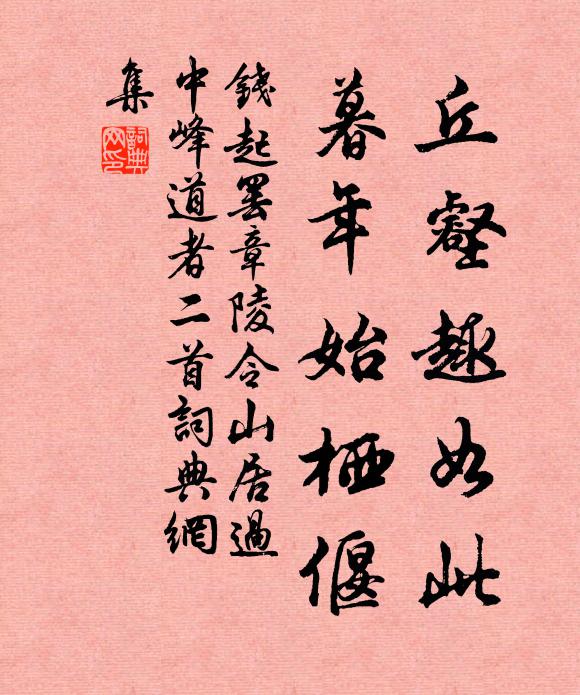 丘壑趣如此
暮年始栖偃
錢起罢章陵令山居過
中峰道者二首詞典網
集
詞典
网印